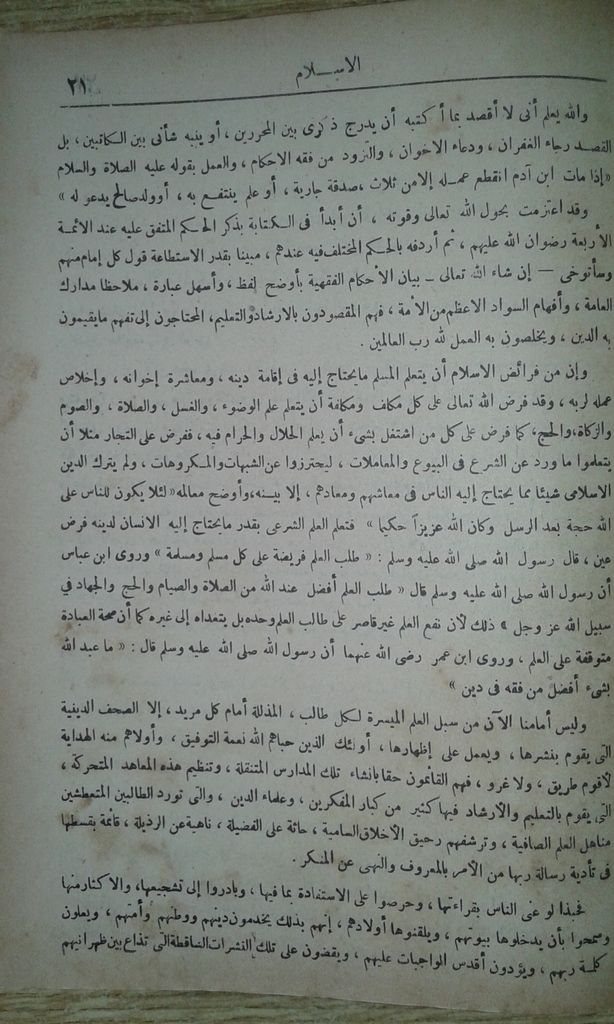 ٢١
الاسلام
والله يعلم أنى لا أقصد بما أكتبه أن يدرج ذكرى بين المحررين ، أو ينبه شأنى بين الكاتبين ، بل
القصد رجاء الغفران ، ودعاء الاخوان ، والتزود من فقه الاحكام ، والعمل بقوله عليه الصلاة والسلام
« إذا مات ابن آدم انقطع عمله إلا من ثلاث ، صدقة جارية ، أو علم ينتفع به ، أو ولد صالح يدعو له »
وقد اعتزمت بحول الله تعالى وقوته ، أن أبدأ فى الكتابة بذكر الحكم المتفق عليه عند الائمة
الأربعة رضوان الله عليهم ، ثم أردفه بالحكم المختلف فيه عندهم ، مبينا بقدر الاستطاعة قول كل إمام منهم
وسأتوخى — إن شاء الله تعالى — بيان الأحكام الفقهية بأوضح لفظ ، وأسهل عبارة ، ملاحظا مدارك
العامة ، وأفهام السواد الاعظم من الأمة ، فهم المقصودون بالارشاد والتعليم ، المحتاجون إلى تفهم ما يقيمون
به الدين ، ويخلصون به العمل لله رب العالمين .
وإن من فرائض الاسلام أن يتعلم المسلم ما يحتاج إليه فى إقامة دينه ، ومعاشرة إخوانه ، وإخلاص
عمله لربه ، وقد فرض الله تعالى على كل مكلف ومكلفة أن يتعلم علم الوضوء ، والغسل ، والصلاة ، والصوم
والزكاة ، والحج ، كما فرض على كل من اشتغل بشىء أن يعلم الحلال والحرام فيه ، ففرض على التجار مثلا أن
يتعلموا ما ورد عن الشرع فى البيوع والمعاملات ، ليحترزوا عن الشبهات والمكروهات ، ولم يترك الدين
الاسلامى شيئا مما يحتاج إليه الناس فى معاشهم ومعادهم ، إلا بينه ، وأوضح معالمه « لئلا يكون للناس على
الله حجة بعد الرسل وكان الله عزيزاً حكيما » فتعلم العلم الشرعى بقدر ما يحتاج إليه الانسان لدينه فرض
عين ، قال رسول الله صلى الله عليه وسلم : « طلب العلم فريضة على كل مسلم ومسلمة » وروى ابن عباس
أن رسول الله صلى الله عليه وسلم قال « طلب العلم أفضل عند الله من الصلاة والصيام والحج والجهاد في
سبيل الله عز وجل » ذلك لأن نفع العلم غير قاصر على طالب العلم وحده بل يتعداه إلى غيره كما أن صحة العبادة
متوقفة على العلم ، وروى ابن عمر رضى الله عنهما أن رسول الله صلى الله عليه وسلم قال : « ما عبد الله
بشىء أفضل من فقه فى دين »
وليس أمامنا الآن من سبل العلم الميسرة لكل طالب ، المذللة أمام كل مريد ، إلا الصحف الدينية
التى يقوم بنشرها ، ويعمل على إظهارها ، أولئك الذين حباهم الله نعمة التوفيق ، وأولاهم منه الهداية
لأقوم طريق ، ولا غرو ، فهم القائمون حقا بانشاء تلك المدارس المتنقلة ، وتنظيم هذه المعاهد المتحركة ،
التى يقوم بالتعليم والارشاد فيها كثير من كبار المفكرين ، وعلماء الدين ، والتى تورد الطالبين المتعطشين
مناهل العلم الصافية ، وترشفهم رحيق الأخلاق السامية ، حاثة على الفضيلة ، ناهية عن الرذيلة ، قائمة بقسطها
فى تأدية رسالة ربها من الأمر بالمعروف والنهى عن المنكر .
فحبذا لو عنى الناس بقراءتها ، وحرصوا على الاستفادة بما فيها ، وبادروا إلى تشجيعها ، والاكثار منها
وسمحوا بأن يدخلوها بيوتهم ، ويلقنوها أولادهم ، إنهم بذلك يخدمون دينهم ووطنهم وأمتهم ، ويعلون
كلمة ربهم ، ويؤدون أقدس الواجبات عليهم ، ويقضون على تلك النشرات الساقطة التى تذاع بين ظهرانيهم